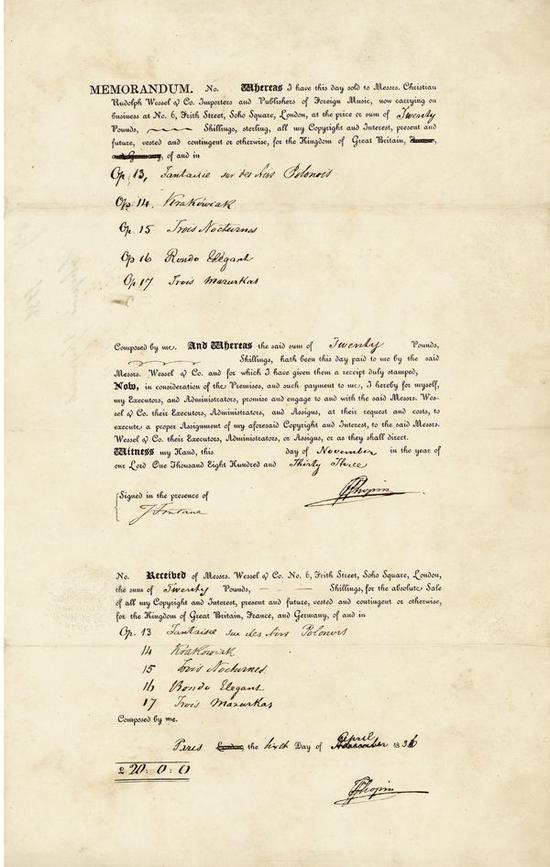 MEMORANDUM. No. Whereas I have this day sold to Messrs. Christian
Rudolph Wessel & Co. Importers and Publishers of Foreign Music, now carrying on
business at No. 6, Frith Street, Soho Square, London, at the price or sum of Twenty
Pounds, Shillings, sterling, all my Copyright and Interest, present and
future, vested and contingent or otherwise, for the Kingdom of Great Britain, France,
and Germany, of and in
Op. 13, Fantaisie sur des Airs Polonois
Op. 14. Krakówiak
Op. 15 Trois Nocturnes
Op 16 Rondo Elégant
Op 17 Trois Mazurkas
Composed by me. And Whereas the said sum of Twenty Pounds,
Shillings, hath been this day paid to me by the said
Messrs. Wessel & Co. and for which I have given them a receipt duly stamped,
Now, in consideration of the Premises, and such payment to me, I hereby for myself,
my Executors, and Administrators, promise and engage to and with the said Messrs. Wes-
sel & Co. their Executors, Administrators, and Assigns, at their request and costs, to
execute a proper Assignment of my aforesaid Copyright and Interest, to the said Messrs.
Wessel & Co. their Executors, Administrators, or Assigns, or as they shall direct.
Witness my Hand, this day of November in the year of
our Lord One Thousand Eight Hundred and Thirty Three
FChopin
Signed in the presence of
J Fontana
No. Received of Messrs. Wessel & Co. No. 6, Frith Street, Soho Square, London,
the sum of Twenty Pounds, — — — Shillings, for the absolute Sale
of all my Copyright and Interest, present and future, vested and contingent or otherwise,
for the Kingdom of Great Britain, France, and Germany, of and in
Op. 13 Fantaisie sur des Airs Polonois
14 Krakowiak
15 Trois Nocturnes
16 Rondo Elegant
17 Trois Mazurkas
Composed by me.
Paris London the sixth Day of April 1836
£ 20: 0: 0
FChopin